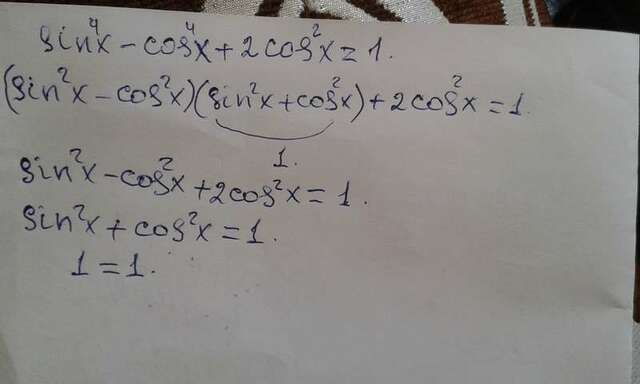 sin⁴x - cos⁴x + 2cos²x = 1.
(sin²x - cos²x)(sin²x + cos²x) + 2cos²x = 1.
1.
sin²x - cos²x + 2cos²x = 1.
sin²x + cos²x = 1.
1 = 1.